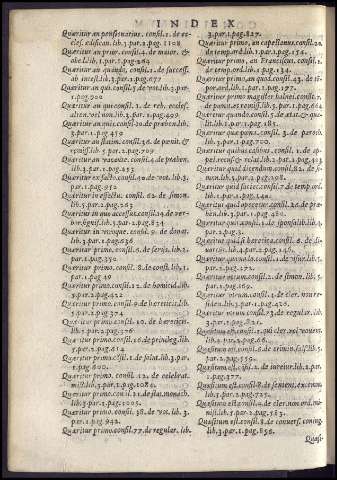 INDEX
Quæritur an pensionarius. consil.1. de ec-
cles. ædifican. lib.3.par.1.pag.1108
Quæritur an prior. consil.4. de maior. &
obe.
Quæritur an quando, consil.1. de successi.
ab intest.lib.3.par.1.pag.671
Quæritur an qui. consil.5. de vot. lib.3.par.
1.pag.904
Quæritur an qui consil.2. de reb. eccles.
alien.vel non.lib.3.par.1.pag.499
Quæritur an quis. consil.50. de præben. lib.
3.par.1.pag.459
Quæritur an statim. consil.5. de pœnit. &
remiss.lib.5.par.2.pag.709
Quæritur an vacavit. consil.4. de præben.
lib.3.par.1.pag.453
Quæritur ex facto. consil.40. de vot. lib.3.
par.1.pag.952
Quæritur in effectu. consil.62. de simon.
lib.5.par.2.pag.263
Quæritur in quo accessus. consil.14. de ver-
bor. signif.lib.5.par.2.pag.
Quæritur in utroque. consil.9. de donat.
lib.3.par.1.pag.636
Quæritur primo. consil.6. de seruis. lib.
5.par.2.pag.350
Quæritur primo. consil.8. de const. lib.1.
par.1.pag.49
Quæritur primo. consil.12. de homicid. lib.
5.par.2.pag.322
Quæritur primo. consil.9. de hæreticis. lib.
5.par.2.pag.374
Quæritur primo. consil.10. de hæreticis.
lib.5.par.2.pag.376
Quæritur primo. consil.16. de priuileg. lib.
5.par.2.pag.614
Quæritur primo. consil.1. de solut. lib.3.par.
1.pag.600.
Quæritur primo. consil.12. de celebrat.
miss.lib.3.par.1.pag.1084.
Quæritur primo. consil.21. de stat. monach.
lib.3.par.1.pag.1005.
Quæritur primo. consil.38. de vot. lib.3.
par.1.pag.942.
Quæritur primo. consil.77. de regular. lib.
3.par.1.pag.827.
Quæritur primo, an capellanus. consil.20.
de temp.ord.lib.1.par.1.pag.154
Quæritur primo, an Franciscus. consil.1.
de temp.ord.lib.1.par.1.pag.134.
Quæritur primo, an quod. consil.2. de
paroch. lib.3.par.1.pag.692
Quæritur primo magister habens. consil.7.
de pœnitent. & remiss.lib.5.par.2.pag.664
Quæritur quando. consil.5. de ætat. & qua-
lit.lib.1.par.1.pag.185.
Quæritur qua pœna. consil.3. de paroch.
lib.3.par.1.pag.700.
Quæritur quibus casibus. consil.2. de ap-
pel. recus. & relat.lib.2.par.1.pag.403
Quæritur quid dicendum. consil.82. de si-
mon.lib.5.par.2.pag.298.
Quæritur quid faciet. consil.7. de temp.ord.
lib.1.par.1.pag.142.
Quæritur quid oportet. consil.34. de præ-
ben. lib.3.par.1.pag.480.
Quæritur quo. consil.1. de sponsalib. lib.4.
par.2.pag.3.
Quæritur quasi hæretica. consil.6. de di-
uort. lib.4.par.2.pag.
Quæritur quomodo. consil.1. de vsur. lib.5.
par.2.pag.371.
Quæritur vtrum. consil.2. de simon. lib.5.
par.2.pag.159.
Quæritur vtrum. consil.1. de cler. non re-
sid.lib.3.par.1.pag.426.
Quæritur vtrum. consil.73. de regular. lib.
3.par.1.pag.821.
Quæsitum est. consil.1. qui cler. vel vouen.
lib.4.par.2.pag.66.
Quæsitum est. consil.2. de crim. fals. lib.5.
par.2.pag.559.
Quæsitum est. consil.1. de iniur. lib.5.par.
2.pag.
Quæsitum est. consil.8. de senten. excom.
lib.5.par.2.pag.
Quæsitum est. consil.4. de cler. non ord. mi-
nist.lib.5.par.2.pag.583.
Quæsitum est. consil.8. de conuers. coniug.
lib.3.par.1.pag.856.
Quæsi-